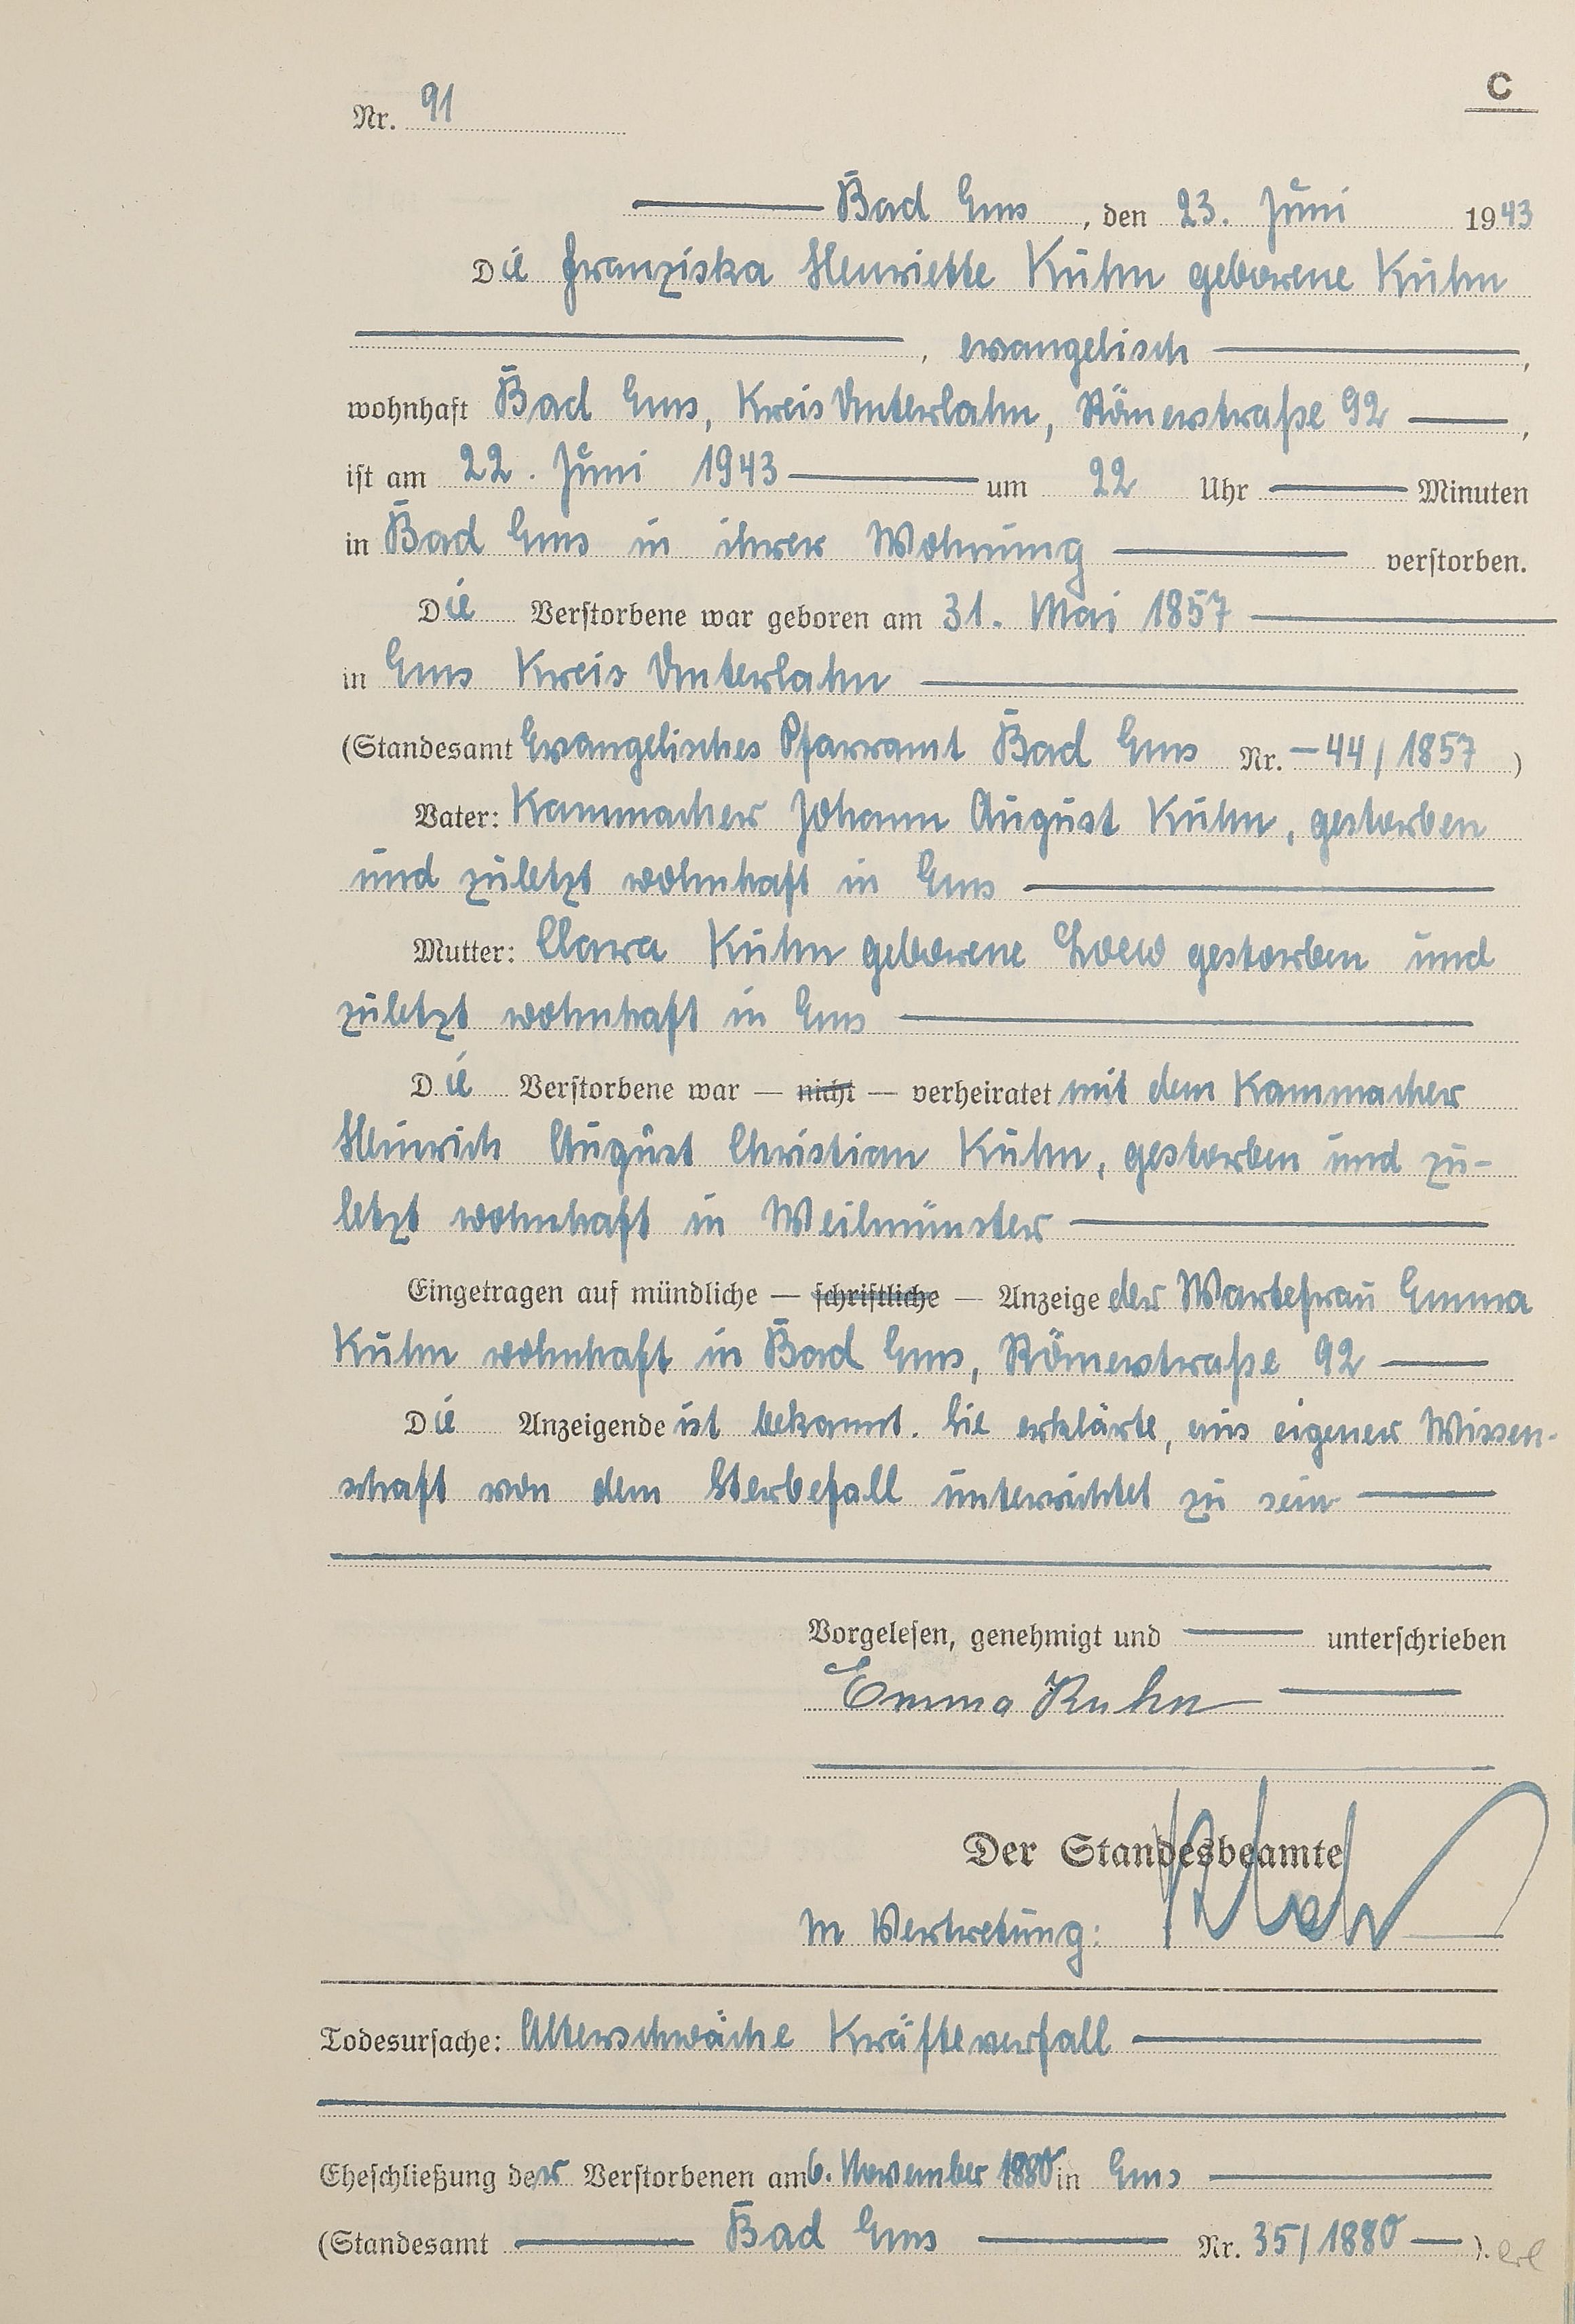 C
Nr. 91
Bad Ems, den 23. Juni 1943
Die Franziska Henriette Kuhn geborene Kuhn
, evangelisch ,
wohnhaft Bad Ems, Kreis Unterlahn, Römerstraße 92 ,
ist am 22. Juni 1943 um 22 Uhr Minuten
in Bad Ems in ihrer Wohnung verstorben.
Die Verstorbene war geboren am 31. Mai 1857
in Ems Kreis Unterlahn
(Standesamt Evangelisches Pfarramt Bad Ems Nr. — 44/1857 )
Vater: Kammacher Johann August Kuhn, gestorben
und zuletzt wohnhaft in Ems
Mutter: Clara Kuhn geborene Loew gestorben und
zuletzt wohnhaft in Ems
Die Verstorbene war — nicht — verheiratet mit dem Kammacher
Heinrich August Christian Kuhn, gestorben und zu-
letzt wohnhaft in Weilmünster
Eingetragen auf mündliche — schriftliche — Anzeige der Wartefrau Emma
Kuhn wohnhaft in Bad Ems, Römerstraße 92
Die Anzeigende ist bekannt. Sie erklärte, aus eigener Wissen-
schaft von dem Sterbefall unterrichtet zu sein
Vorgelesen, genehmigt und unterschrieben
Emma Kuhn
Der Standesbeamte
In Vertretung:
Todesursache: Altersschwäche Kräfteverfall
Eheschließung der Verstorbenen am 6. November 1880 in Ems
(Standesamt Bad Ems Nr. 35/1880 — ). erl